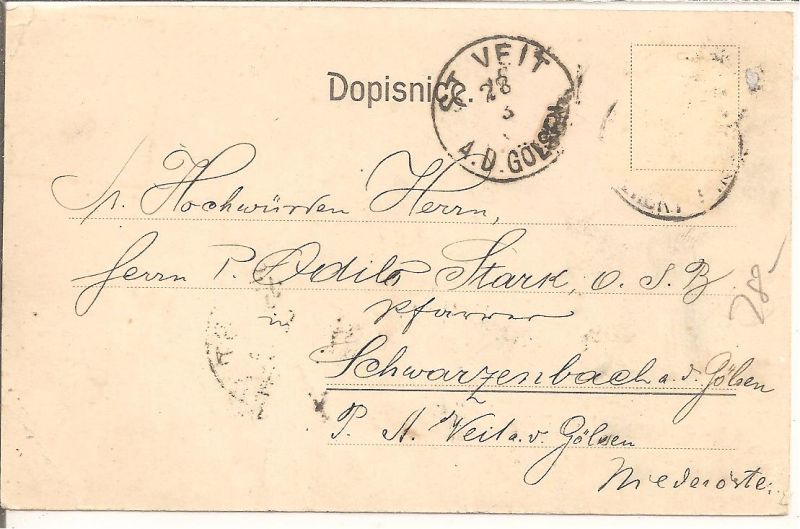 Dopisnice.
ST. VEIT
28
3
A.D. GÖLSEN
Sr. Hochwürden Herrn,
Herrn P. Odilo Stark, O. S. B.
Pfarrer
in
Schwarzenbach a. d. Gölsen
P. St. Veit a. d. Gölsen
Niederöste
28-